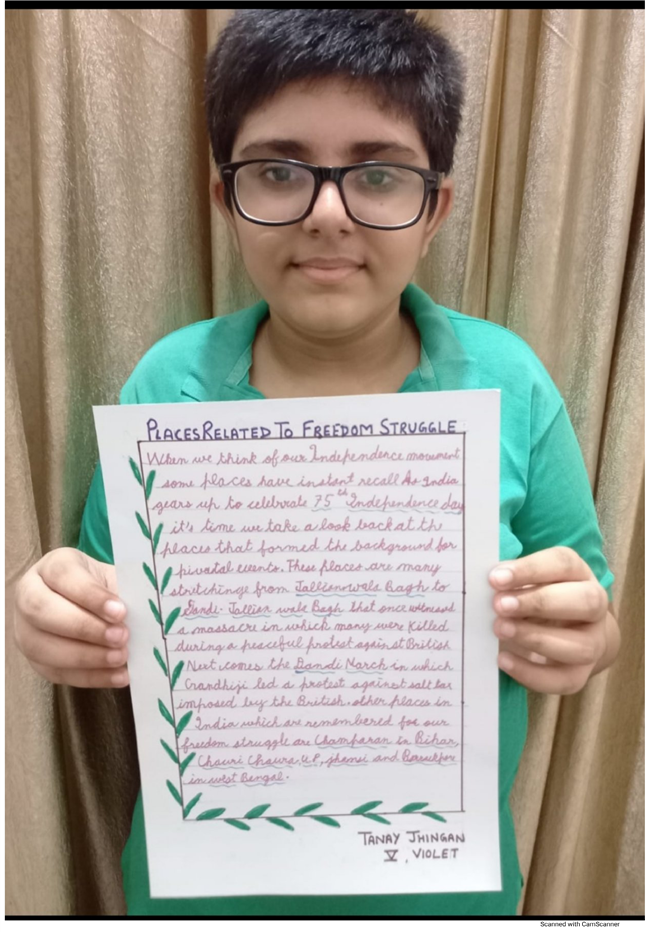 PLACES RELATED TO FREEDOM STRUGGLE
When we think of our Independence movement
some places have instant recall As India
gears up to celebrate 75th Independence day
it's time we take a look back at the
places that formed the background for
pivatal events. These places are many
stretchinge from Jallienwala Bagh to
Dandi. Jallien wala Bagh that once witnessed
a massacre in which many were killed
during a peaceful protest against British
Next comes the Dandi March in which
Gandhiji led a protest against salt
imposed by the British. other places in
India which are remembered for our
freedom struggle are Champaran in Bihar,
Chauri Chaura, U.P, jhansi and
in west Bengal.
TANAY JHINGAN
V, VIOLET
Scanned with CamScanner